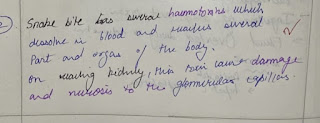 2. Snake bite has several haemotoxins which
dissolve in blood and reaches several
part and organ of the body.
On reaching kidney, this toxin cause damage
and necrosis to the glomerular capillaries.